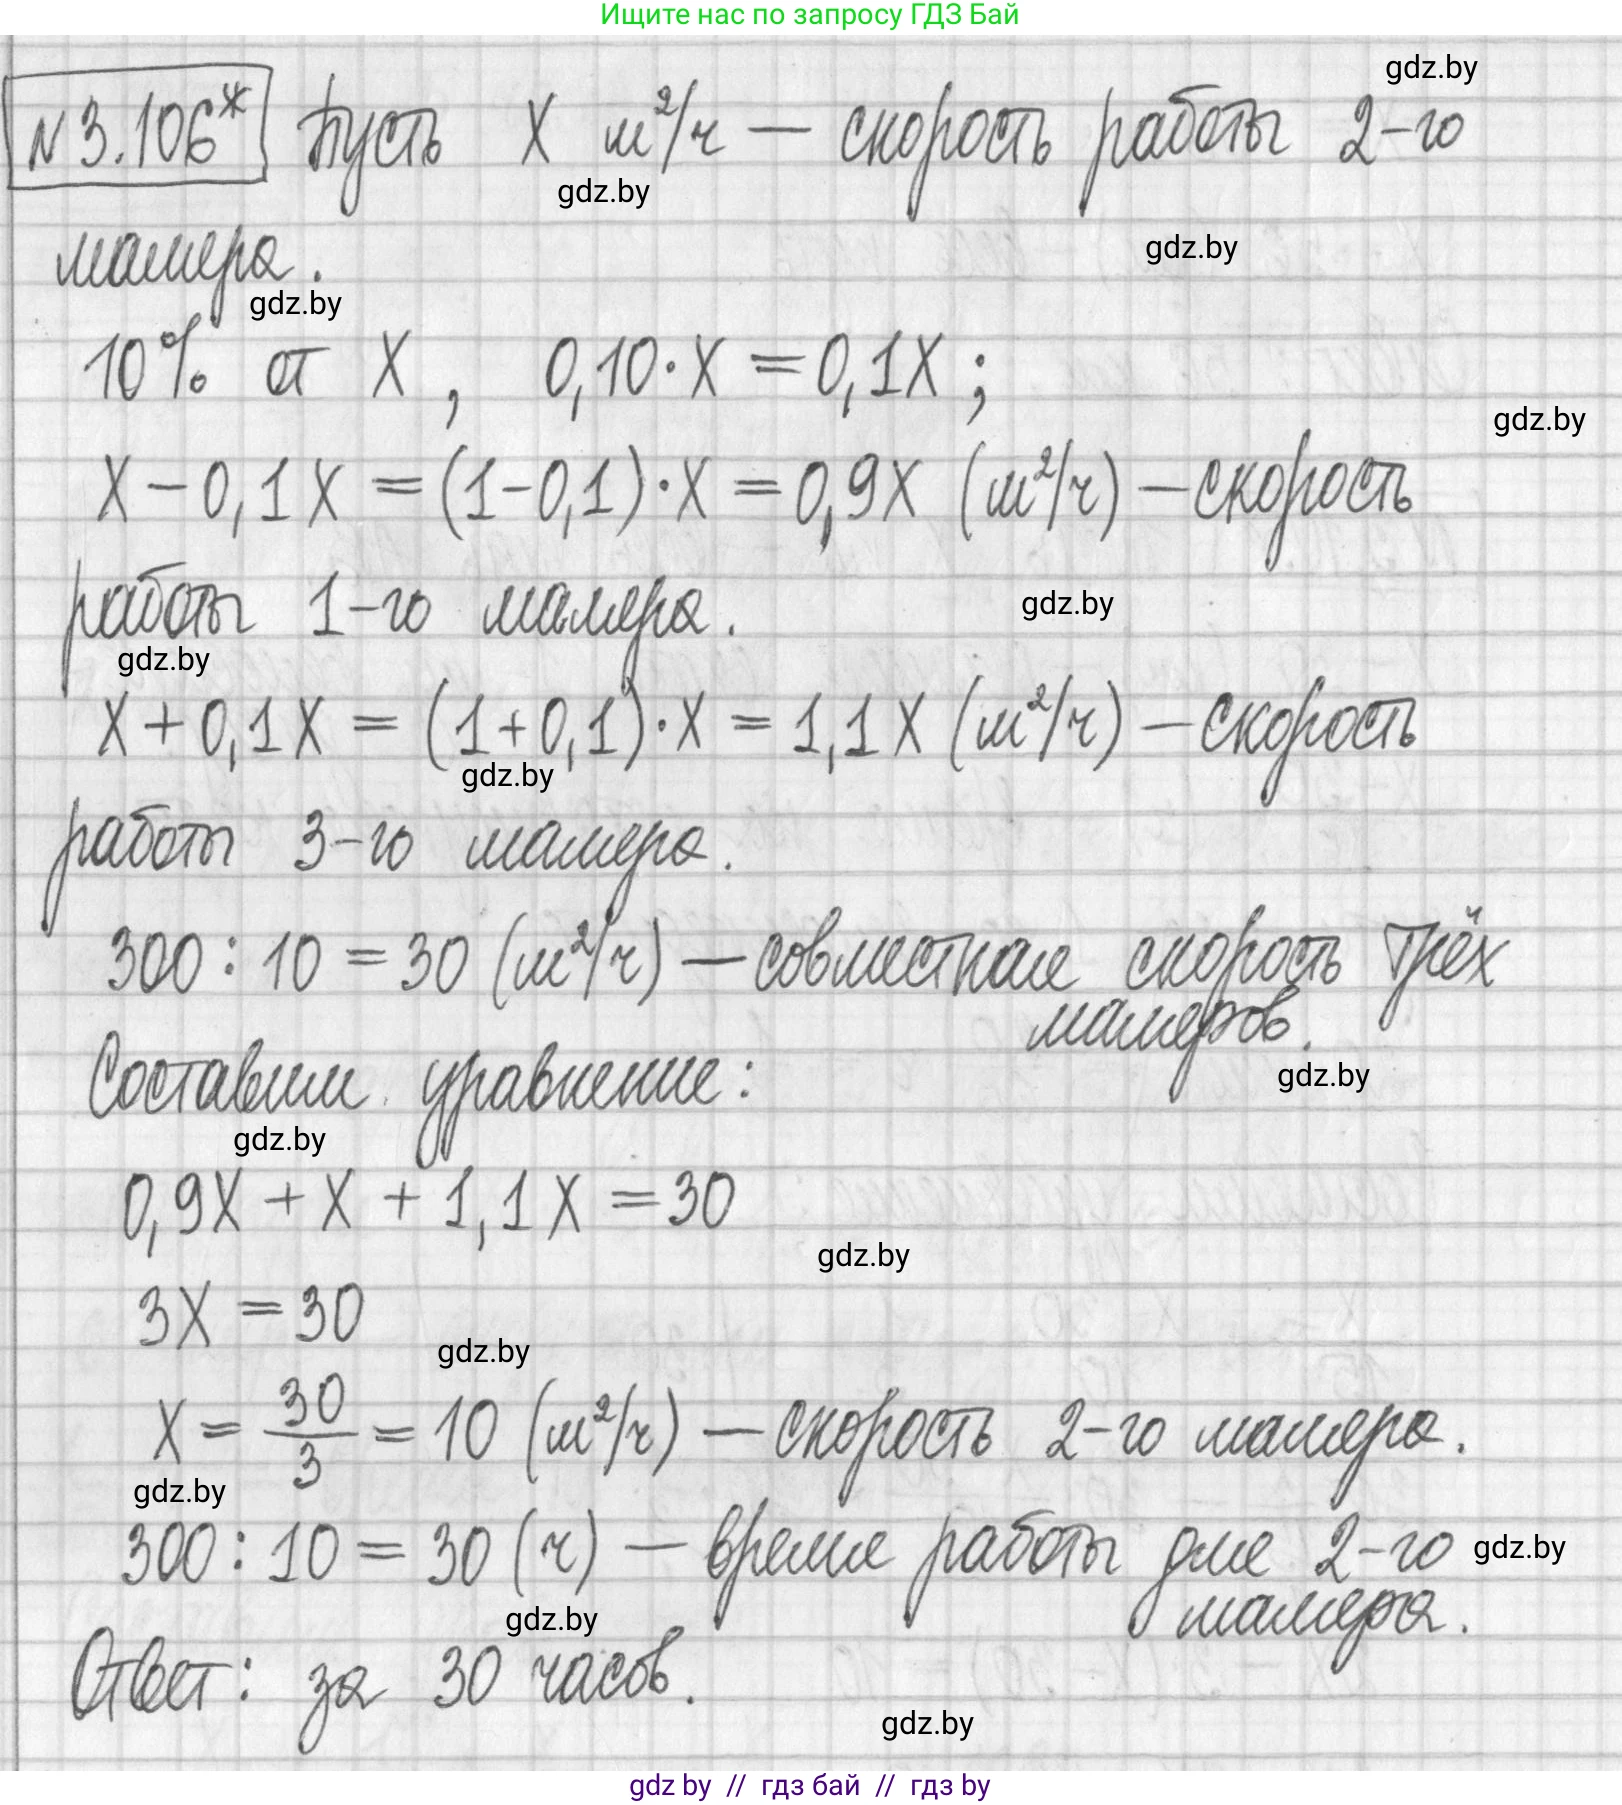 Ищите нас по запросу ГДЗ Бай
gdz.by
№3.106* Пусть x м²/ч — скорость работы 2-го
gdz.by
маляра.
gdz.by
gdz.by
10% от x, 0,10·x = 0,1x;
gdz.by
x − 0,1x = (1−0,1)·x = 0,9x (м²/ч) — скорость
работы 1-го маляра.
gdz.by
gdz.by
x + 0,1x = (1+0,1)·x = 1,1x (м²/ч) — скорость
gdz.by
работы 3-го маляра.
300 : 10 = 30 (м²/ч) — совместная скорость трёх
маляров.
gdz.by
Составим уравнение:
gdz.by
0,9x + x + 1,1x = 30
gdz.by
3x = 30
gdz.by
x = 30/3 = 10 (м²/ч) — скорость 2-го маляра.
gdz.by
300 : 10 = 30 (ч) — время работы для 2-го
gdz.by
маляра.
gdz.by
Ответ: за 30 часов.
gdz.by
gdz by // гдз бай // гдз by